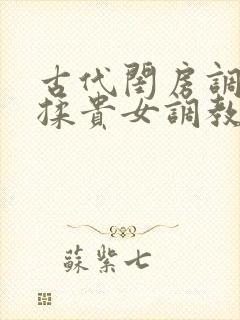 古代閨房調
揉貴女調教
蘇紫七